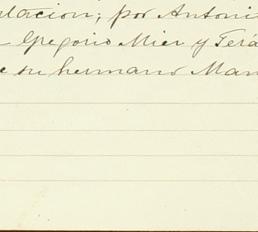 utacion; por Antoni
Gregorio Mier y Terá
e su hermano Man